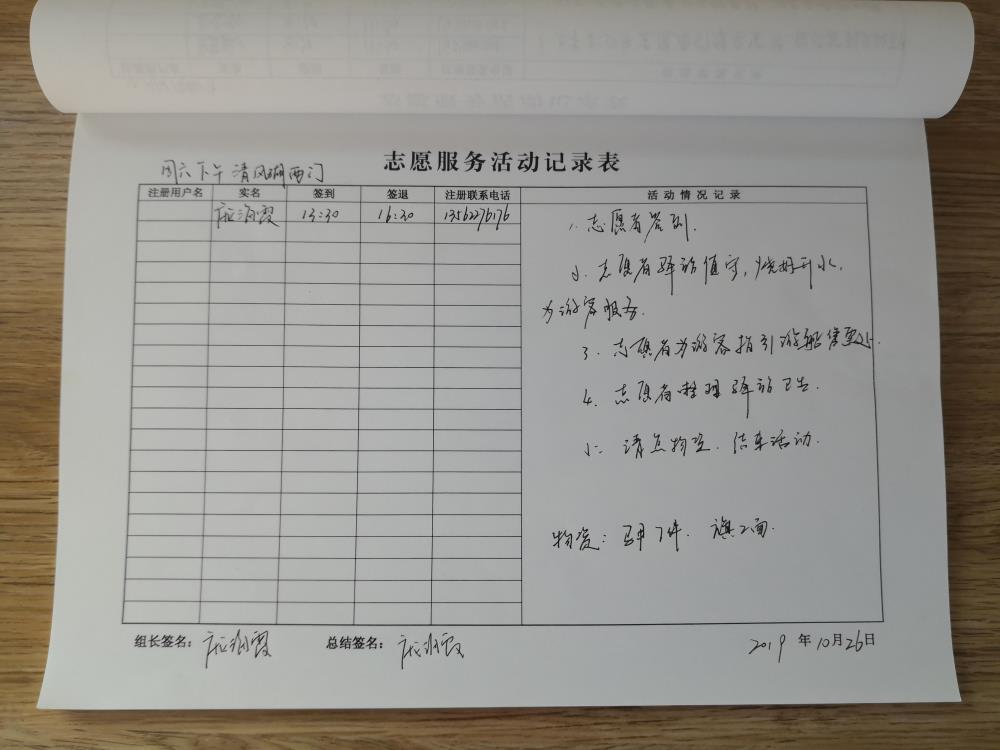 志愿服务活动记录表
周六下午 清风湖西门
注册用户名 实名 签到 签退 注册联系电话 活动情况记录
海霞 13:30 16:30 13562276176
1. 志愿者签到.
2. 志愿者驿站值守, 烧好开水,
为游客服务.
3. 志愿者为游客指引游船售票处.
4. 志愿者整理驿站卫生.
5. 请点物资. 结束活动.
物资: 马甲7件. 旗2面.
组长签名: 海霞 总结签名: 海霞 2019年10月26日